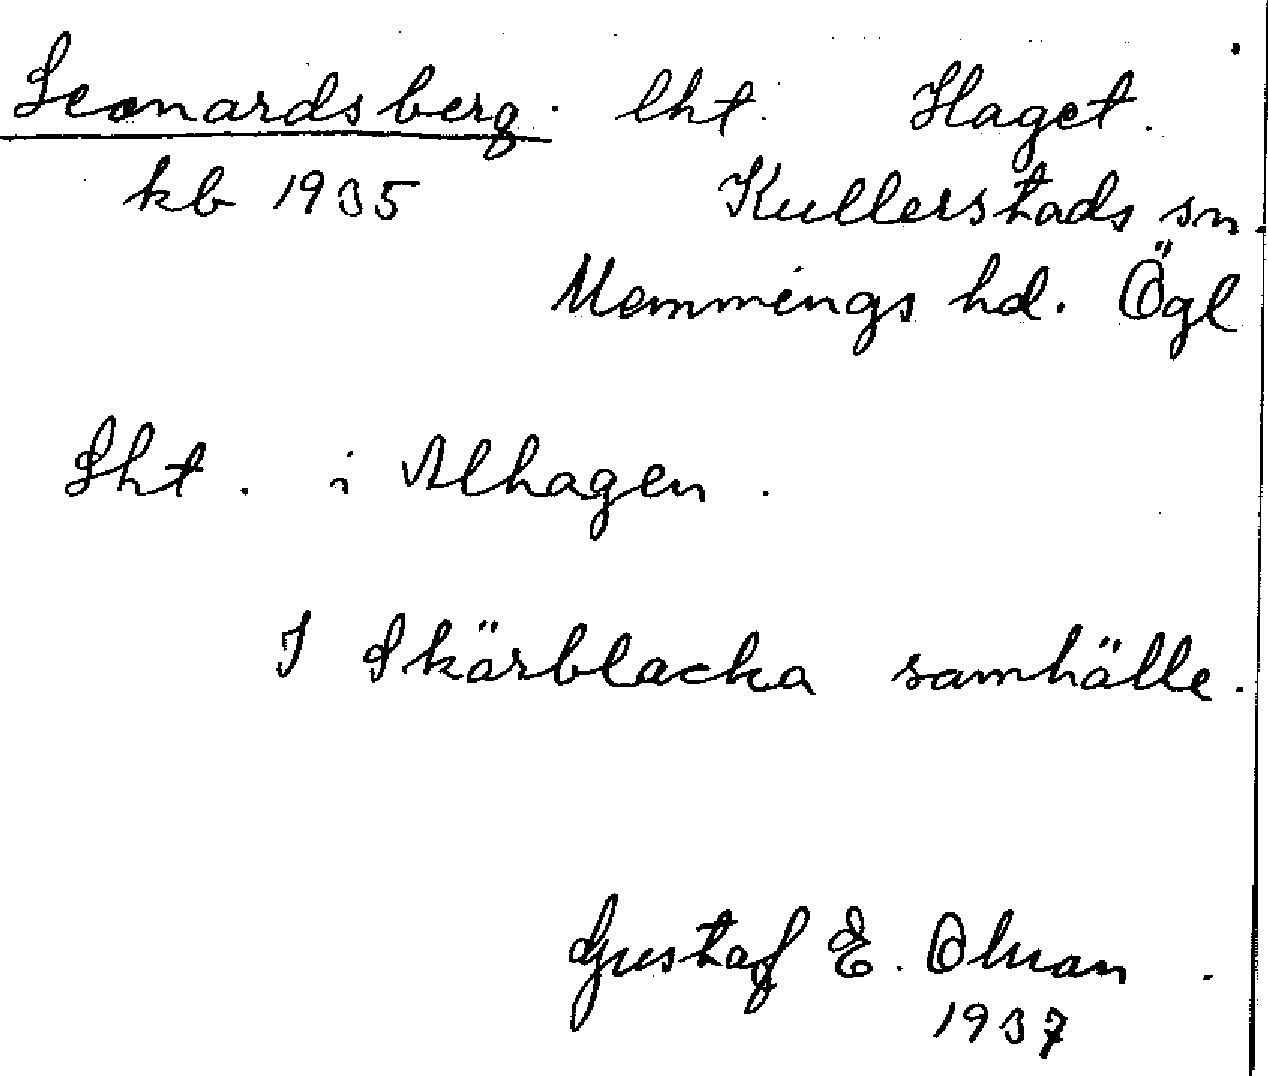 Leonardsberg. lht. Haget.
kb 1935 Kullerstads sn.
Memmings hd. Ögl
Lht. i Alhagen.
I Skärblacka samhälle.
Gustaf E. Olson.
1937